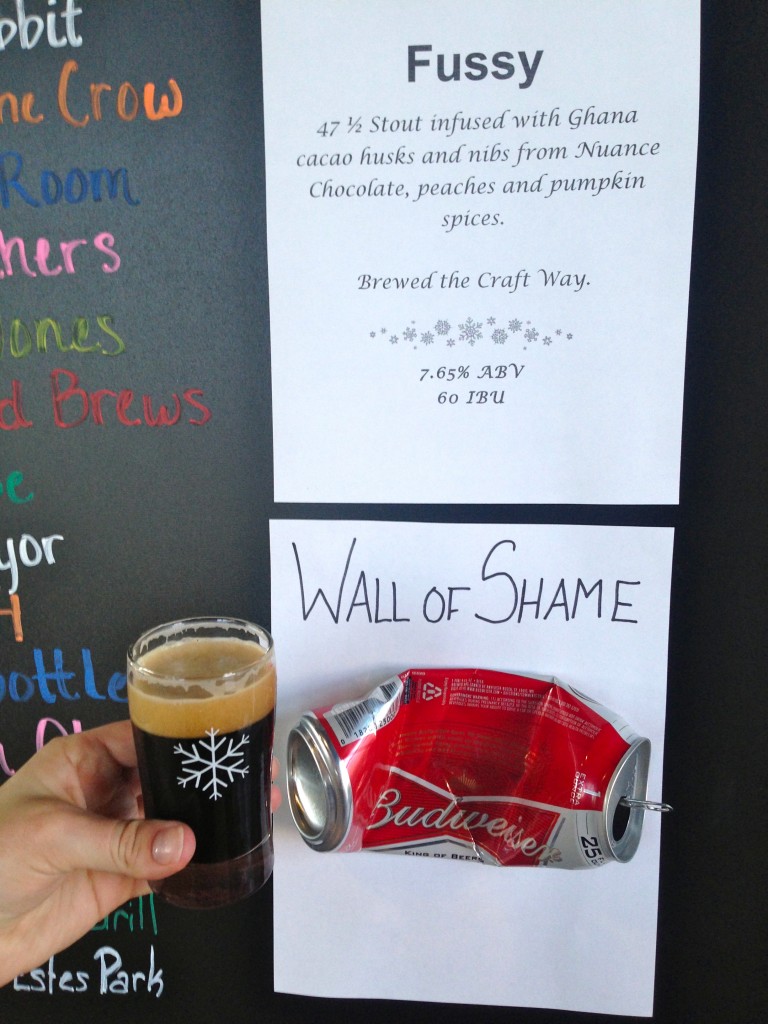 Crow
Room
Brews
Estes Park
Fussy
47 ½ Stout infused with Ghana
cacao husks and nibs from Nuance
Chocolate, peaches and pumpkin
spices.
Brewed the Craft Way.
7.65% ABV
60 IBU
WALL OF SHAME
Budweiser
KING OF BEERS
EXTRA
OUNCE
25